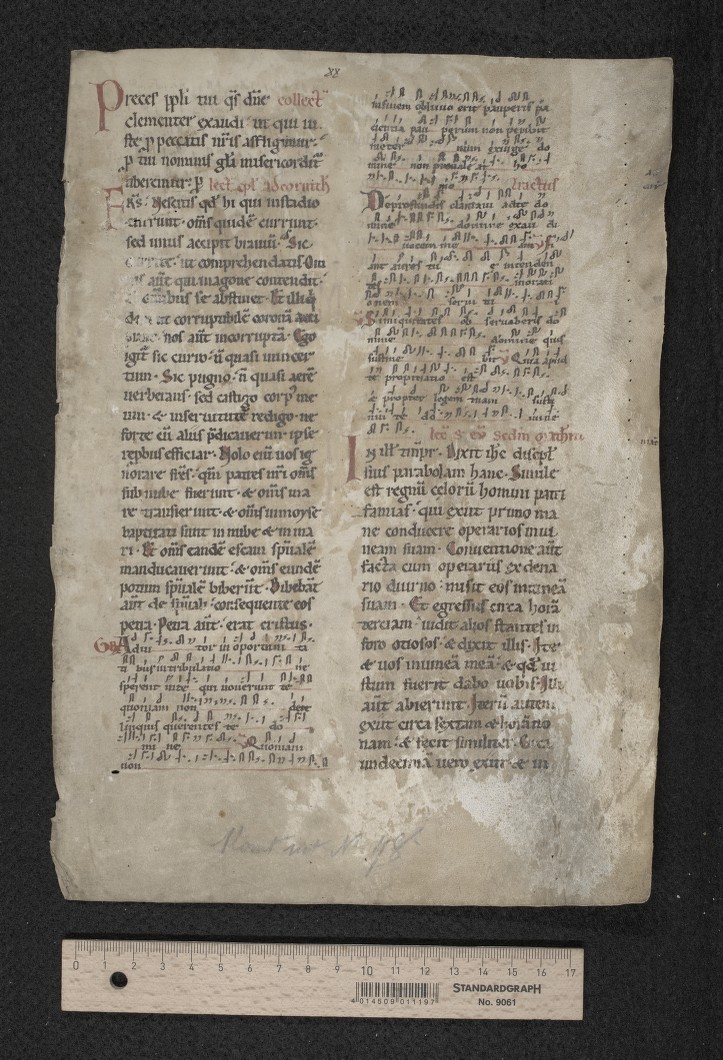 xx
Preces ppli tui qs dne collect
clementer exaudi ut qui iu
ste p peccatis nris affligimur
p tui nominis gla misericordit
liberemur p lect epl ad corinth
Frs Nescitis qd hi qui in stadio
currunt oms quide currunt
sed unus accipit braviu Sic
currite ut comprehendatis Om
nis aut qui in agone contendit
omnibus se abstinet Et illi qd
ut corruptibile corona acci
piant nos aut incorrupta Ego
igit sic curro n quasi in incer
tum Sic pugno n quasi aere
verberans sed castigo corp me
um & in servitute redigo ne
forte cu aliis pdicaverim ipse
reprobus efficiar Nolo eni vos ig
norare frs qm patres nri oms
sub nube fuerunt & oms ma
re transierunt & oms in moyse
baptizati sunt in nube & in ma
ri Et oms eande escam spuale
manducaverunt & oms eunde
potum spuale biberut Bibebat
aut de spuali consequente eos
petra Petra aut erat cristus
Adiu tor in oportuni ta
ti bus in tribulatio ne
sperent in te qui noverunt te
quoniam non dere
linquis querentes te do
mi ne Quoniam
non
in finem oblivio erit pauperis pa
cientia pau perum non peribit
exurge do
mine non prevale at ho
mo Tractus
De profundis clamavi ad te do
mine domine exaudi
vocem me am
aures tu e intenden
tes
orationem servi tu i
Si iniquitates ob servaveris do
mine domine quis
sustine bit Quia apud
te propitiatio est
& propter legem tuam susti
nui te do mine
lec s ev sedm mathm
In illo tempr Dixit ihc discipl
suis parabolam hanc Simile
est regnu celoru homini patri
familias qui exiit primo ma
ne conducere operarios in vi
neam suam Conventione aut
facta cum operariis ex dena
rio diurno misit eos in vinea
suam Et egressus circa hora
terciam vidit alios stantes in
foro otiosos & dixit illis Ite
& vos in vinea mea & qd iu
stum fuerit dabo vobis Illi
aut abierunt Iteru autem
exiit circa sextam & hora no
nam & fecit similiter Circa
undecima vero exiit & in
0 1 2 3 4 5 6 7 8 9 10 11 12 13 14 15 16 17
4 014509 011197
STANDARDGRAPH
No. 9061